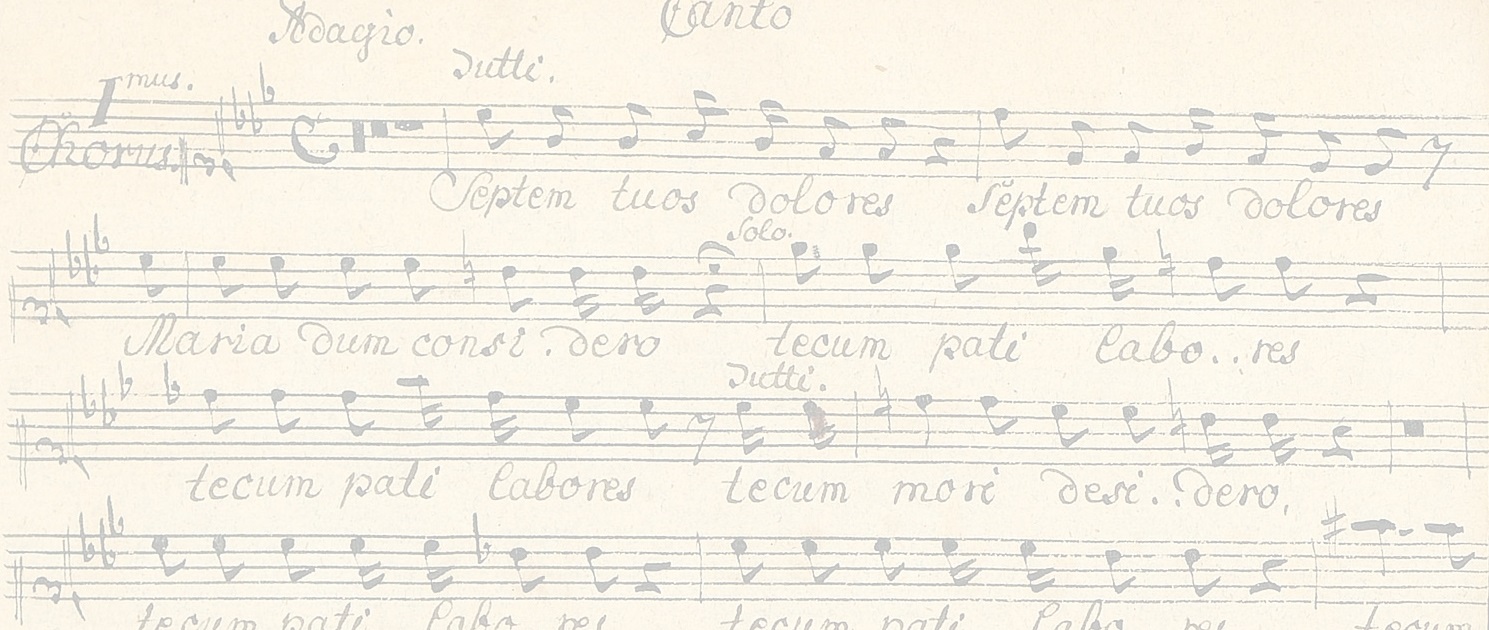 Canto
Adagio.
Tutti.
Imus.
Chorus
Septem tuos dolores Septem tuos dolores
Solo.
Maria dum consi. dero tecum pati labo. . res
Tutti.
tecum pati labores tecum mori desi. . dero,
tecum pati labo res tecum pati labo res tecum